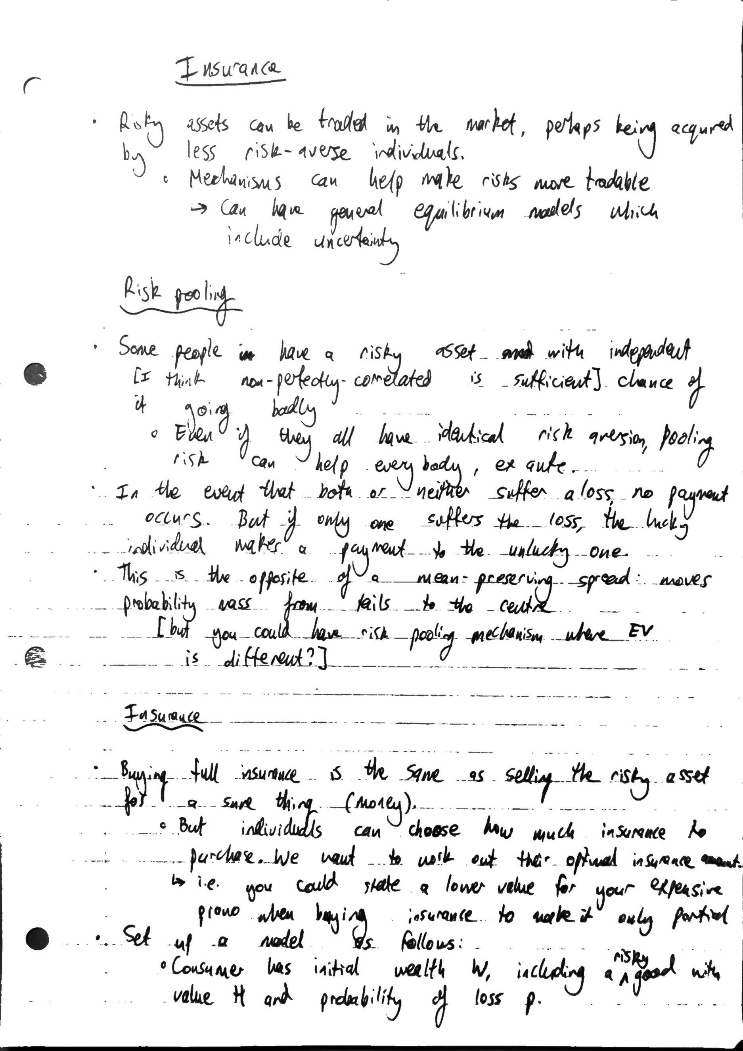 Insurance
• Risky assets can be traded in the market, perhaps being acquired
by less risk-averse individuals.
◦ Mechanisms can help make risks more tradable
→ Can have general equilibrium models which
include uncertainty
Risk pooling
• Some people have a risky asset with independent
[I think non-perfectly-correlated is sufficient] chance of
it going badly
◦ Even if they all have identical risk aversion, pooling
risk can help everybody, ex ante.
• In the event that both or neither suffer a loss, no payment
occurs. But if only one suffers the loss, the lucky
individual makes a payment to the unlucky one.
• This is the opposite of a mean-preserving spread: moves
probability mass from tails to the centre
[but you could have risk pooling mechanism where EV
is different?]
Insurance
• Buying full insurance is the same as selling the risky asset
for a sure thing (money).
◦ But individuals can choose how much insurance to
purchase. We want to work out their optimal insurance amount.
↳ i.e. you could state a lower value for your expensive
piano when buying insurance to make it only partial
• Set up a model as follows:
◦ Consumer has initial wealth W, including a risky good with
value H and probability of loss p.